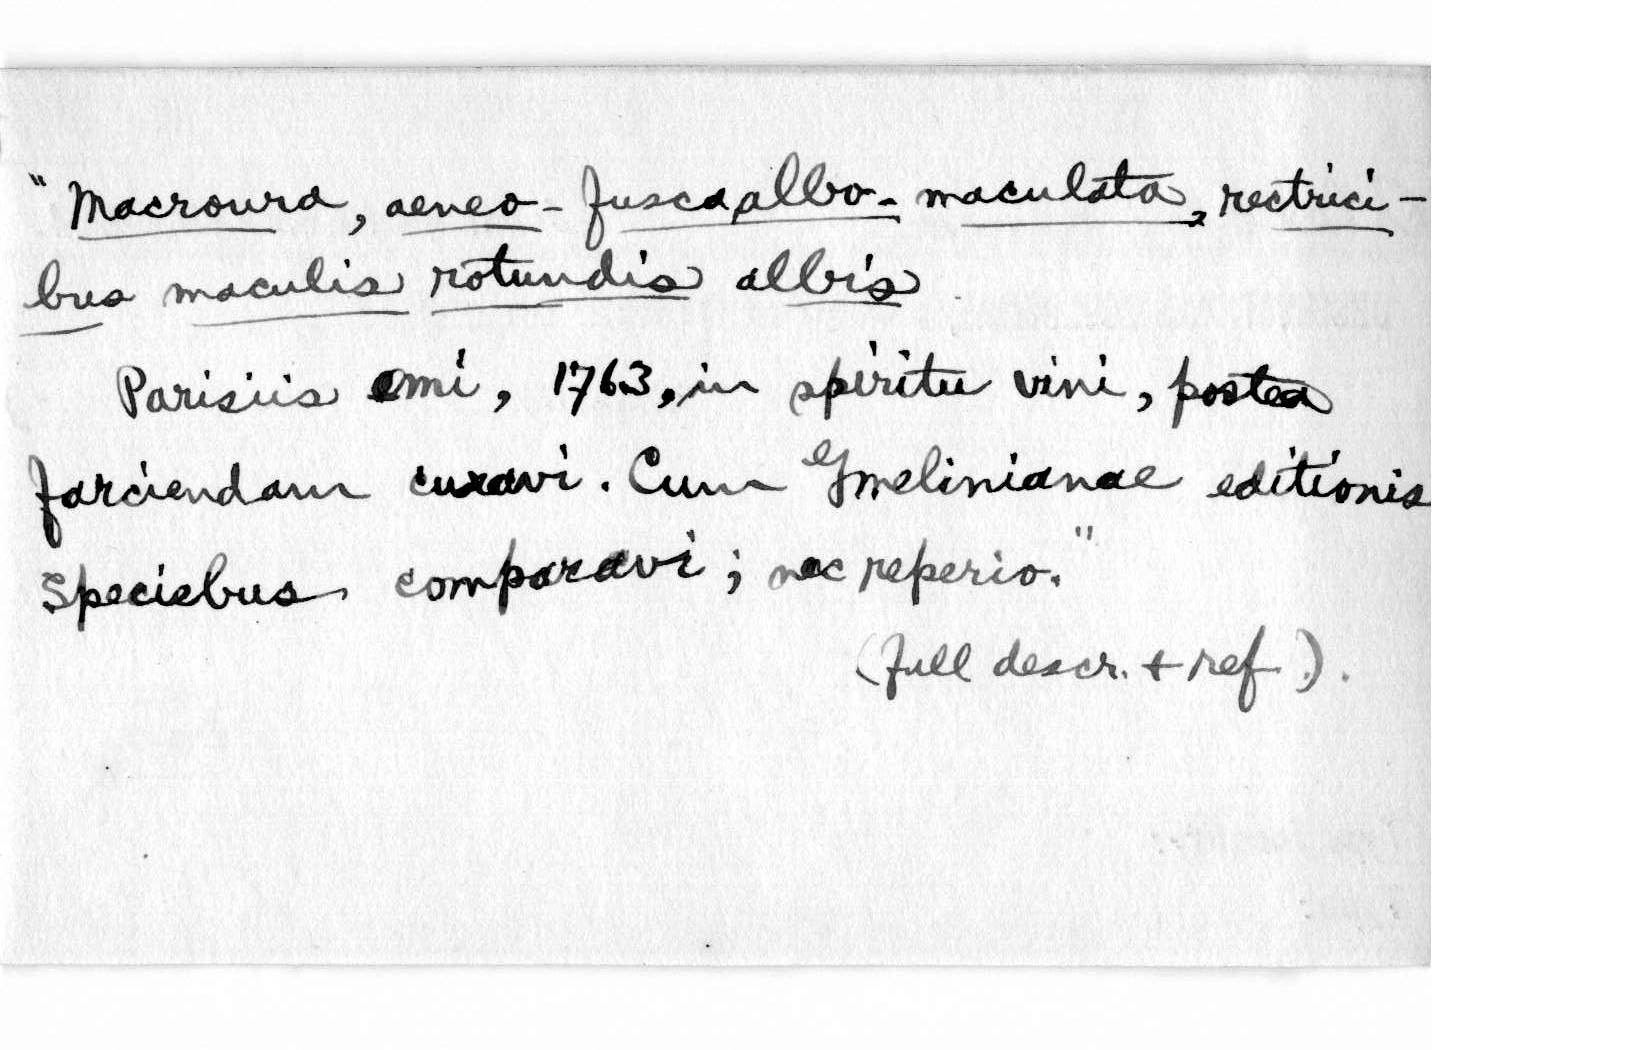 "Macroura, aeneo-fusca, albo-maculata, rectrici-
bus maculis rotundis albis
Parisiis emi, 1763, in spiritu vini, postea
farciendam curavi. Cum Gmelinianae editionis
Speciebus comparavi; nec reperio."
(full descr. + ref.).